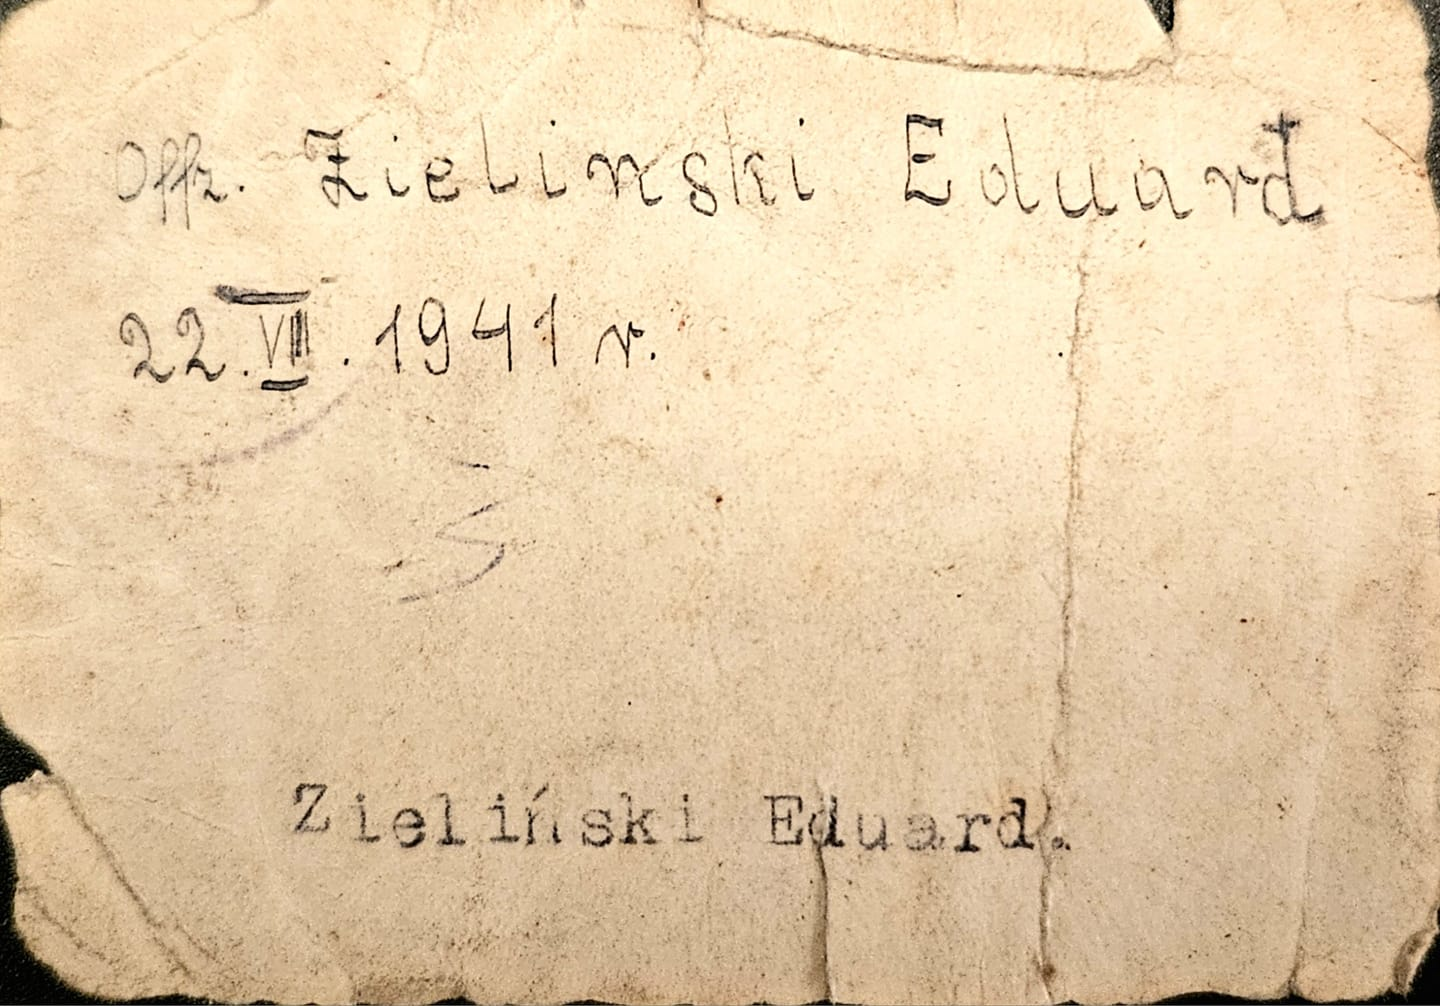 Offz. Zielinski Eduard
22.VII.1941 r.
Zieliński Eduard.